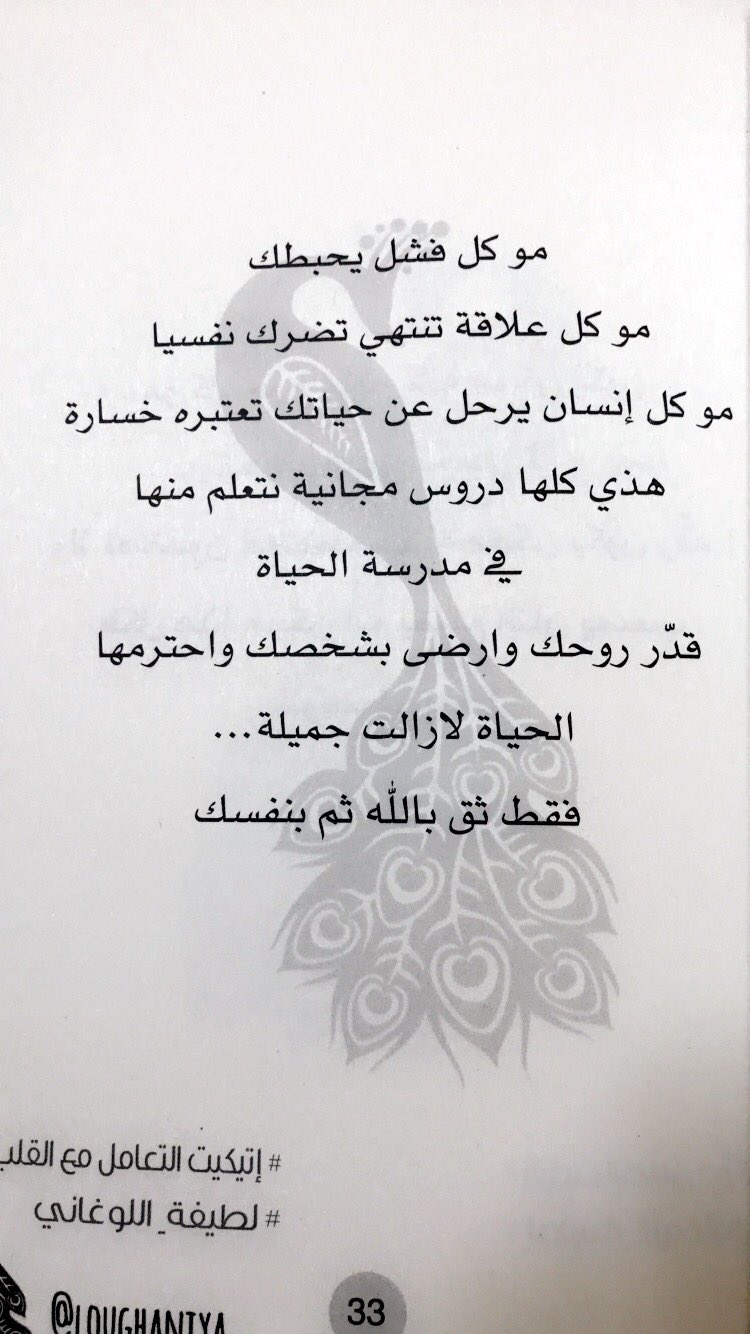 مو كل فشل يحبطك
مو كل علاقة تنتهي تضرك نفسيا
مو كل إنسان يرحل عن حياتك تعتبره خسارة
هذي كلها دروس مجانية نتعلم منها
في مدرسة الحياة
قدّر روحك وارضى بشخصك واحترمها
الحياة لازالت جميلة...
فقط ثق بالله ثم بنفسك
# إتيكيت التعامل مع القلب
# لطيفة_اللوغاني
@LOUGHANIYA
33